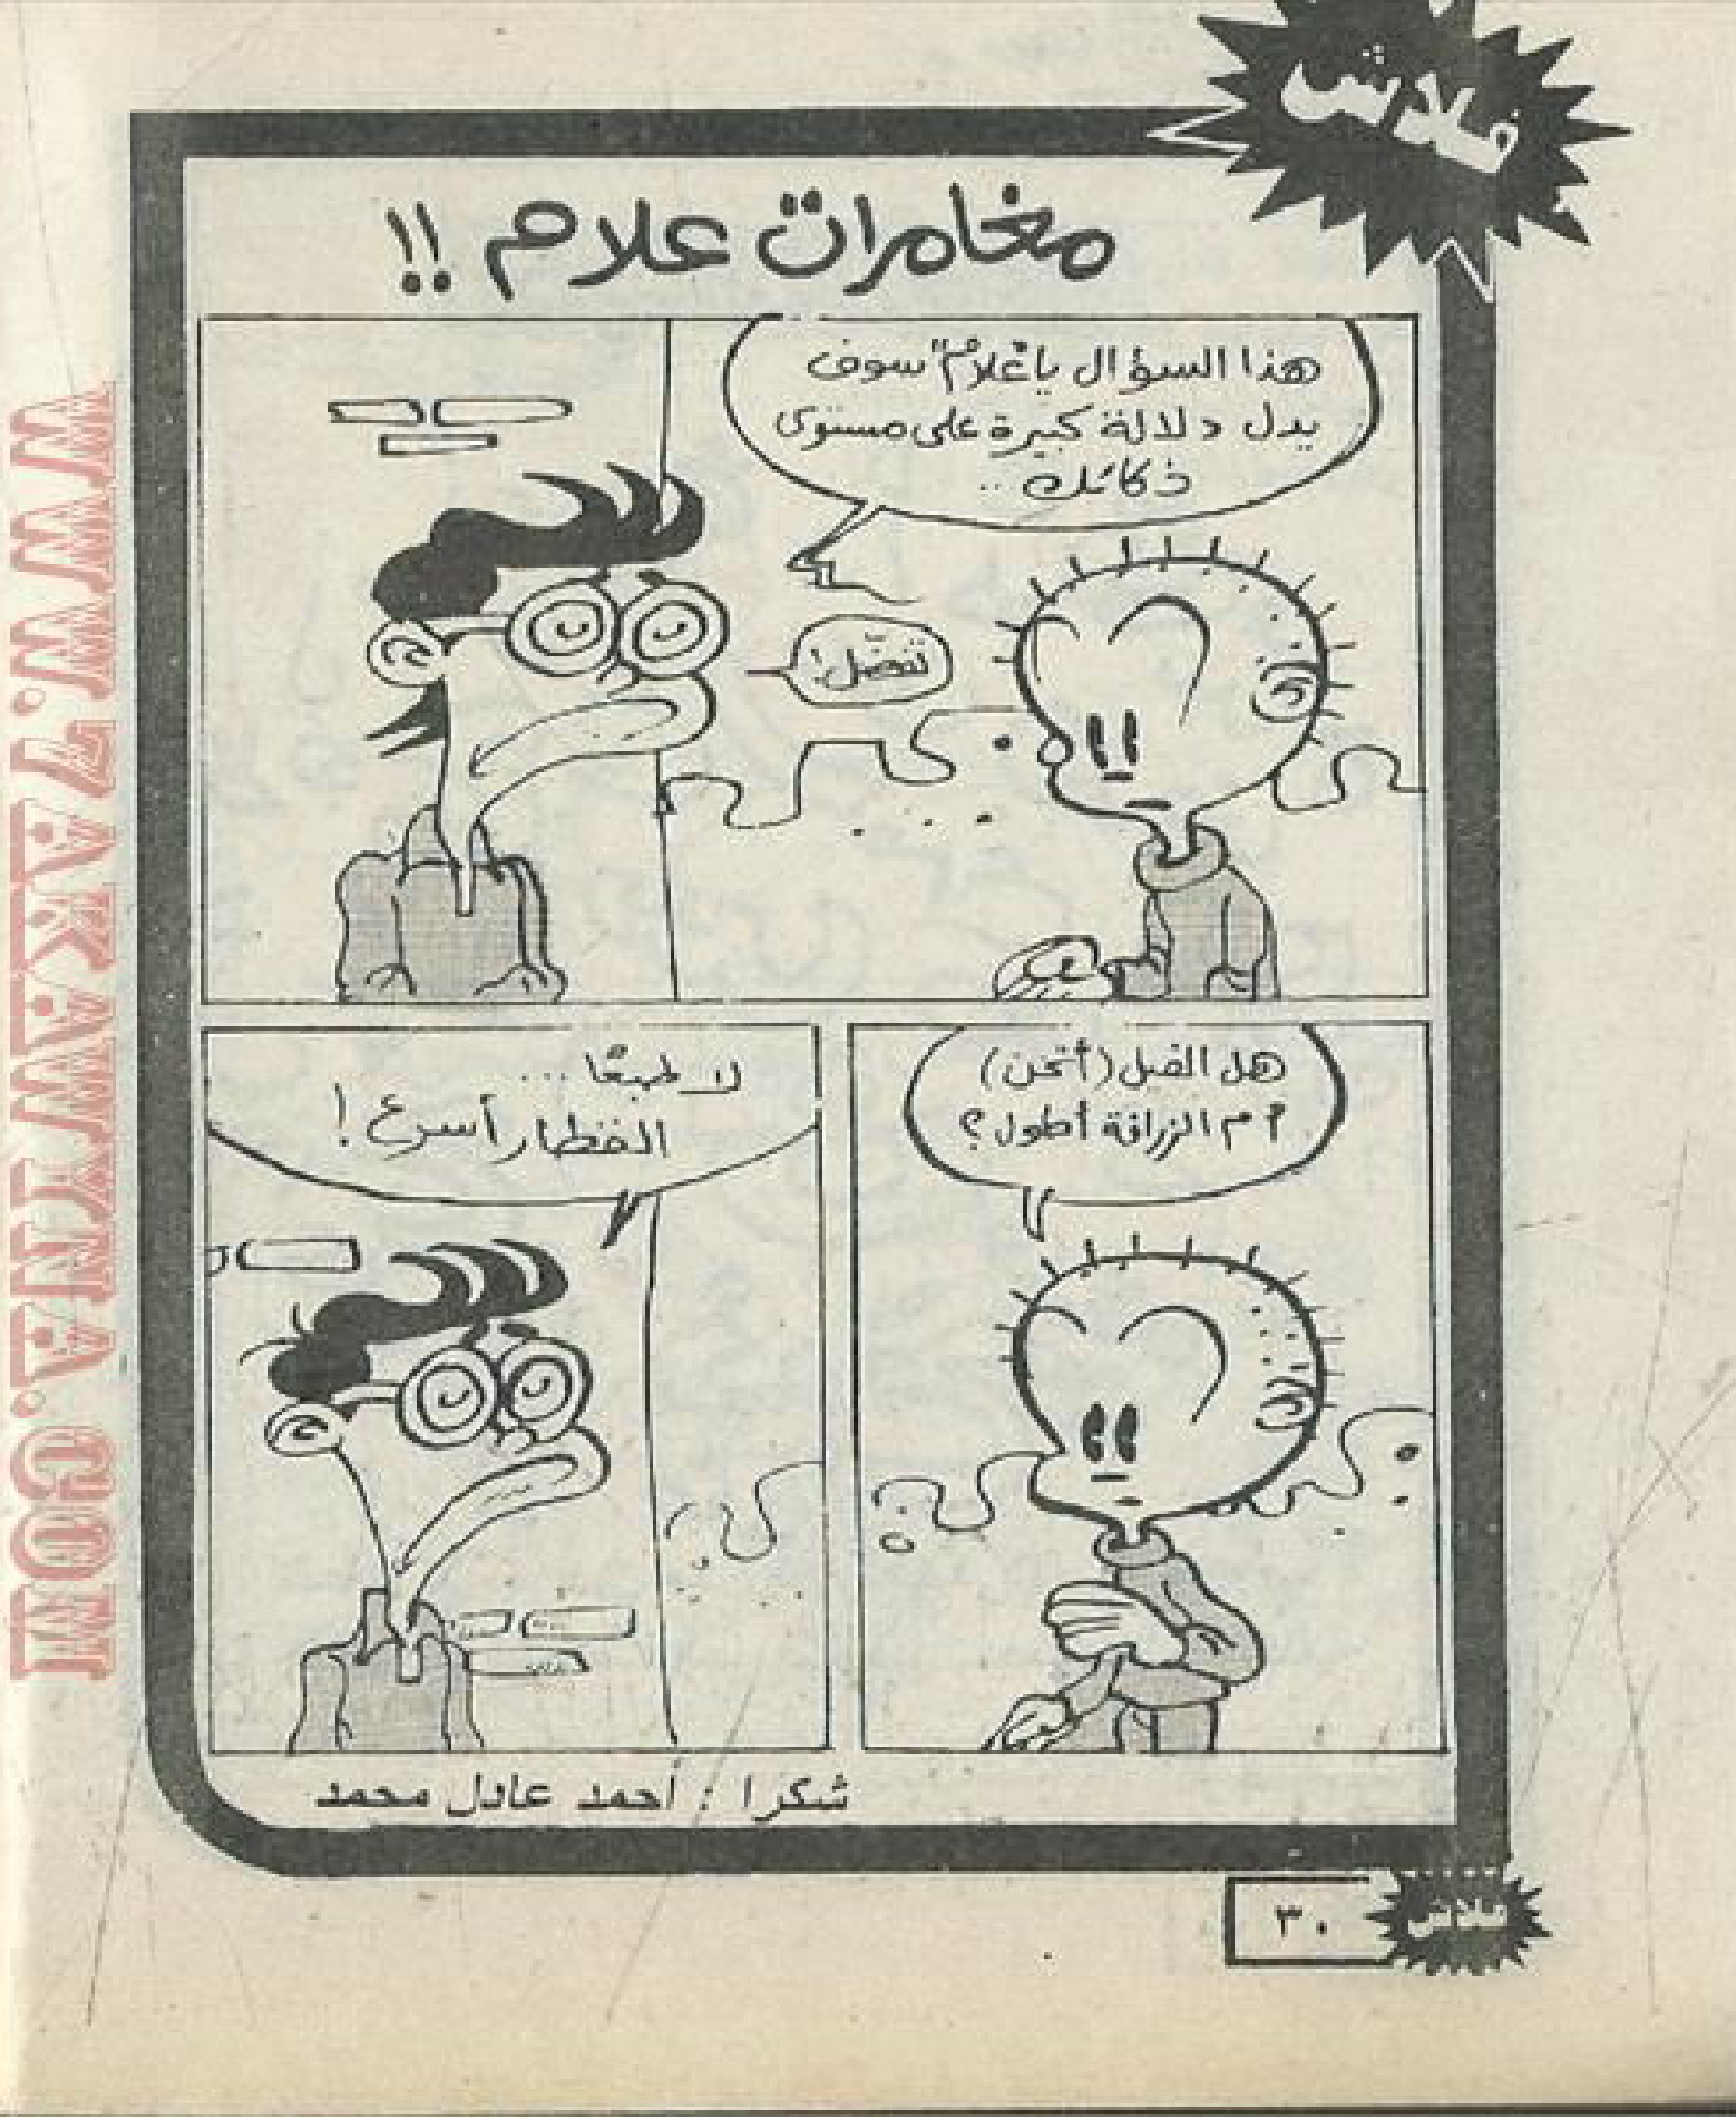 فلاش
مغامرات علام !!
هذا السؤال يا "علام" سوف
يدل دلالة كبيرة على مستوى
ذكائك ..
تفضّل!
هل الفيل (أتخن)
أم الزرافة أطول؟
لا طبعًا ...
القطار أسرع!
شكرا : أحمد عادل محمد
٣٠
فلاش
WWW.7AKAWYNA.COM